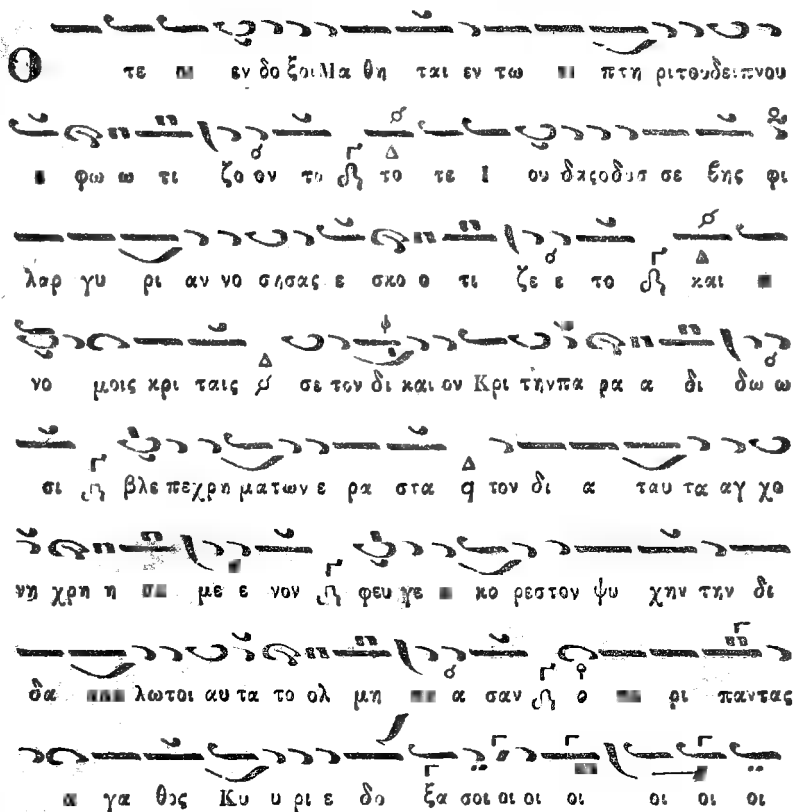 Ο τε εν δο ξοι Μα θη ται εν τω πτη ρι του δειπνου
φω ω τι ζο ον το το τε Ι ου δας ο δυσ σε βης φι
λαρ γυ ρι αν νο σησας ε σκο ο τι ζε ε το και
νο μοις κρι ταις σε τον δι και ον Κρι την πα ρα α δι δω ω
σι βλε πε χρη ματων ε ρα στα τον δι α ταυ τα αγ χο
νη χρη η με ε νον φευ γε κο ρεστον ψυ χην την δι
δα λω τοι αυ τα το ολ μη α σαν ο ρι παντας
γα θος Κυ υ ρι ε δο ξα σοι οι οι οι οι οι οι